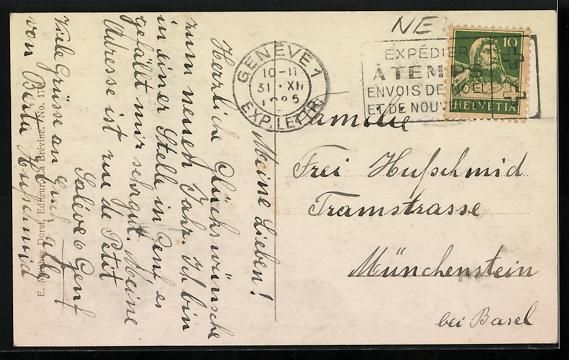 NE
GENÈVE 1
10-11
31.XII
EXP. LETTR.
EXPÉDIER
A TEMPS
ENVOIS DE NOËL
ET DE NOUV
10
HELVETIA
Meine Lieben!
Herzlich Glückswünsche
zum neuen Jahr. Ich bin
in einer Stelle in Genf es
gefällt mir sehr gut. Meine
Adresse ist rue de Petit
Salève 6 Genf
Viele Grüsse an Euch alle
von Berta Hufschmid
Familie
Frei Hufschmid
Tramstrasse
Münchenstein
bei Basel